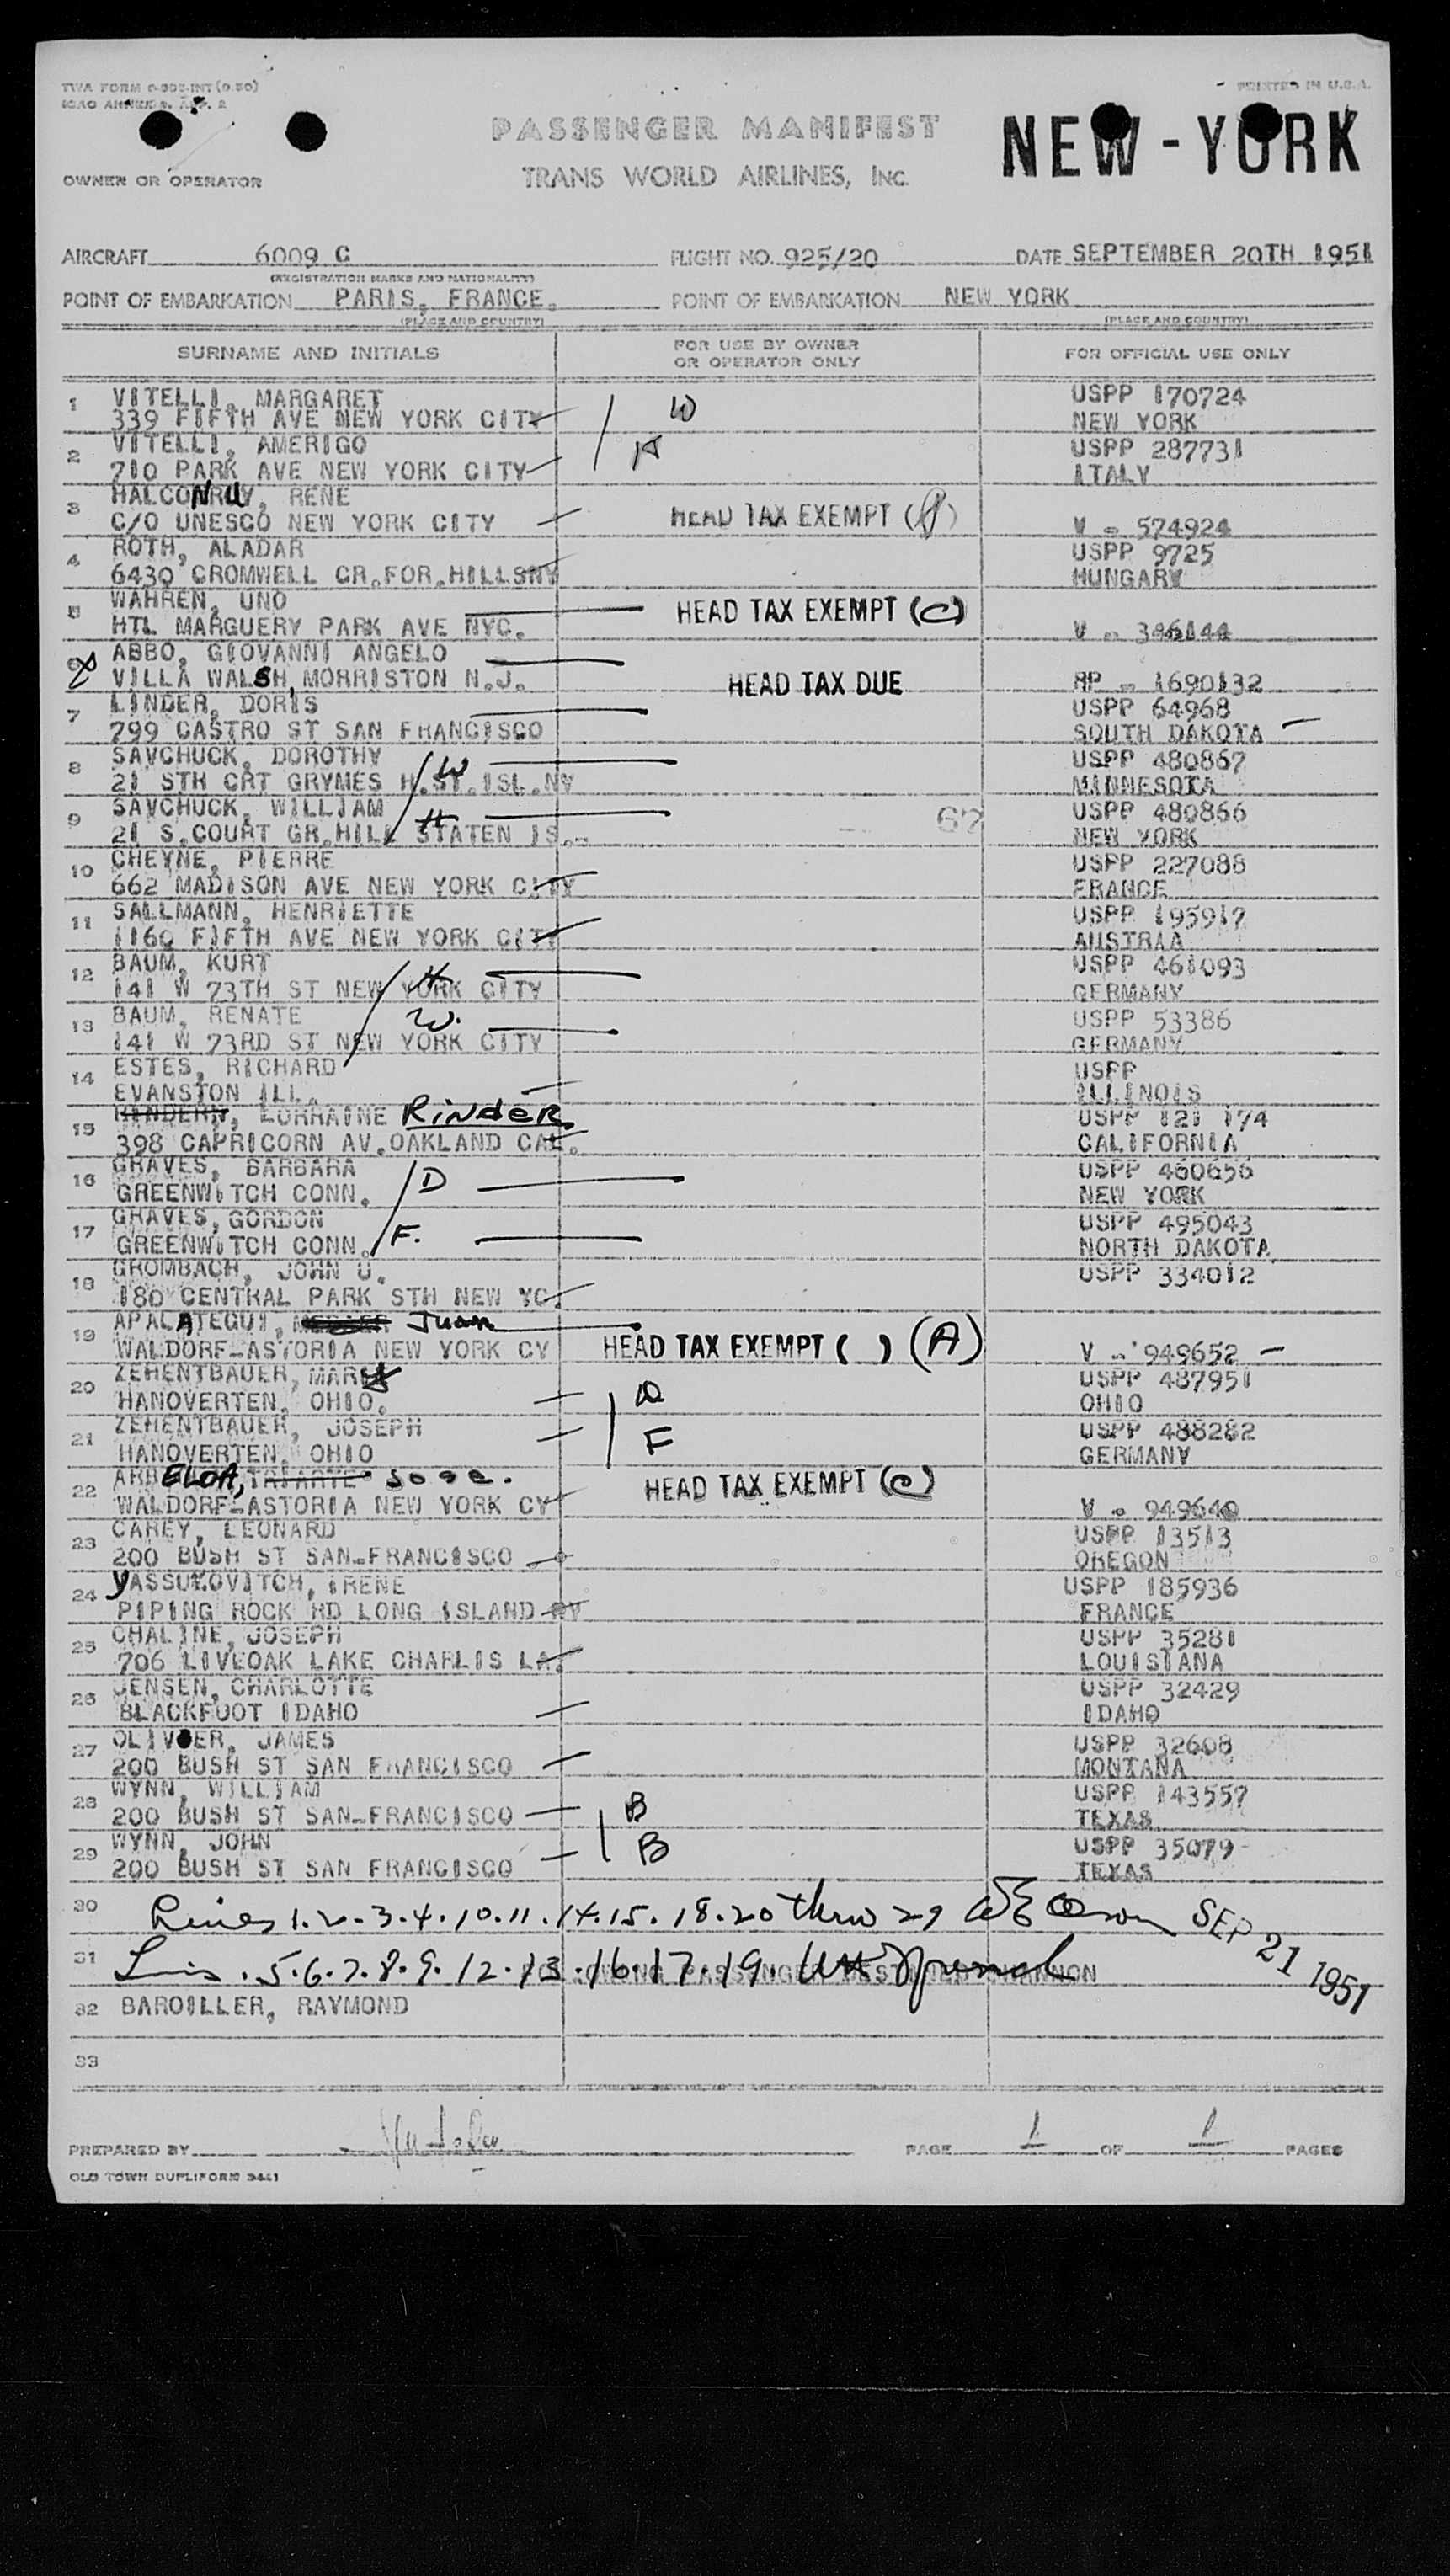 TWA FORM 0-302-INT (9.50)
ICAO ANNEX 9, APP. 2
PRINTED IN U.S.A.
PASSENGER MANIFEST
NEW-YORK
TRANS WORLD AIRLINES, INC.
OWNER OR OPERATOR
AIRCRAFT 6009 C FLIGHT NO. 925/20 DATE SEPTEMBER 20TH 1951
(REGISTRATION MARKS AND NATIONALITY)
POINT OF EMBARKATION PARIS, FRANCE. POINT OF EMBARKATION NEW YORK
(PLACE AND COUNTRY) (PLACE AND COUNTRY)
SURNAME AND INITIALS FOR USE BY OWNER OR OPERATOR ONLY FOR OFFICIAL USE ONLY
1 VITELLI, MARGARET W USPP 170724
339 FIFTH AVE NEW YORK CITY NEW YORK
2 VITELLI, AMERIGO H USPP 287731
710 PARK AVE NEW YORK CITY ITALY
3 RENE
C/O UNESCO NEW YORK CITY HEAD TAX EXEMPT V - 574924
4 ROTH, ALADAR USPP 9725
6430 CROMWELL CR.FOR.HILLSNY HUNGARY
5 WAHREN, UNO HEAD TAX EXEMPT (C)
HTL MARGUERY PARK AVE NYC. V - 346144
6 ABBO, GIOVANNI ANGELO
VILLA WALSH, MORRISTON N.J. HEAD TAX DUE RP - 1690132
7 LINDER, DORIS USPP 64968
799 CASTRO ST SAN FRANCISCO SOUTH DAKOTA
8 SAVCHUCK, DOROTHY W USPP 480867
21 STH CRT GRYMES H.ST.ISL.NY MINNESOTA
9 SAVCHUCK, WILLIAM H 67 USPP 480866
21 S.COURT GR.HILL STATEN IS. NEW YORK
10 CHEYNE, PIERRE USPP 227088
662 MADISON AVE NEW YORK CITY FRANCE
11 SALLMANN, HENRIETTE USPP 195917
1160 FIFTH AVE NEW YORK CITY AUSTRIA
12 BAUM, KURT H USPP 461093
141 W 73TH ST NEW YORK CITY GERMANY
13 BAUM, RENATE W. USPP 53386
141 W 73RD ST NEW YORK CITY GERMANY
14 ESTES, RICHARD USPP
EVANSTON ILL. ILLINOIS
15 LORRAINE Rinder USPP 121 174
398 CAPRICORN AV.OAKLAND CAL. CALIFORNIA
16 GRAVES, BARBARA D USPP 460656
GREENWITCH CONN. NEW YORK
17 GRAVES, GORDON F. USPP 495043
GREENWITCH CONN. NORTH DAKOTA
18 GROMBACH, JOHN U. USPP 334012
180 CENTRAL PARK STH NEW YC.
19 APALATEGUI, Juan
WALDORF-ASTORIA NEW YORK CY HEAD TAX EXEMPT ( ) (A) V - 949652
20 ZEHENTBAUER, MARY D USPP 487951
HANOVERTEN, OHIO. OHIO
21 ZEHENTBAUER, JOSEPH F USPP 488282
HANOVERTEN, OHIO GERMANY
22 ARBELOA, Jose.
WALDORF-ASTORIA NEW YORK CY HEAD TAX EXEMPT (C) V - 949640
23 CAREY, LEONARD USPP 13513
200 BUSH ST SAN-FRANCISCO OREGON
24 YASSUKOVITCH, IRENE USPP 185936
PIPING ROCK RD LONG ISLAND NY FRANCE
25 CHALINE, JOSEPH USPP 35281
706 LIVEOAK LAKE CHARLIS LA. LOUISIANA
26 JENSEN, CHARLOTTE USPP 32429
BLACKFOOT IDAHO IDAHO
27 OLIVER, JAMES USPP 32608
200 BUSH ST SAN FRANCISCO MONTANA
28 WYNN, WILLIAM B USPP 143557
200 BUSH ST SAN-FRANCISCO TEXAS
29 WYNN, JOHN B USPP 35079
200 BUSH ST SAN FRANCISCO TEXAS
30 Lines 1.2.3.4.10.11.14.15.18.20 thru 29 SEP 21 1951
31 Lines 5.6.7.8.9.12.13.16.17.19.
32 BAROILLER, RAYMOND
33
PREPARED BY PAGE 1 OF 1 PAGES
OLD TOWN DUPLIFORM 3441